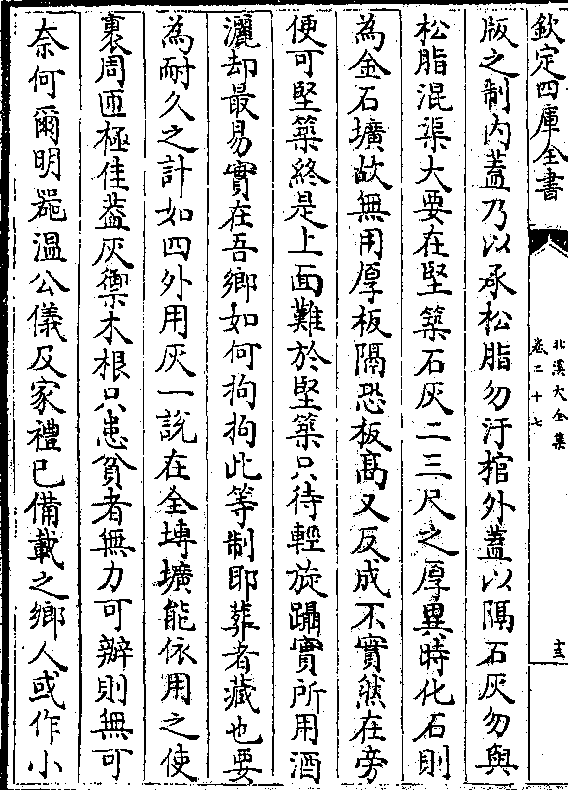 欽定四庫全書
北溪大全集
卷二十七
十三
版之制内蓋乃以承松脂勿汙棺外蓋以隔石灰勿與
松脂混渠大要在堅築石灰二三尺之厚異時化石則
為金石壙故無用厚板隔恐板髙又反成不實然在旁
便可堅築終是上面難於堅築只待輕旋躡實所用酒
灑却最易實在吾鄉如何拘拘此等制耶葬者藏也要
為耐久之計如四外用灰一説在全塼壙能依用之使
裹周匝極佳葢灰禦木根只患貧者無力可辦則無可
奈何爾明器溫公儀及家禮已備載之鄉人或作小